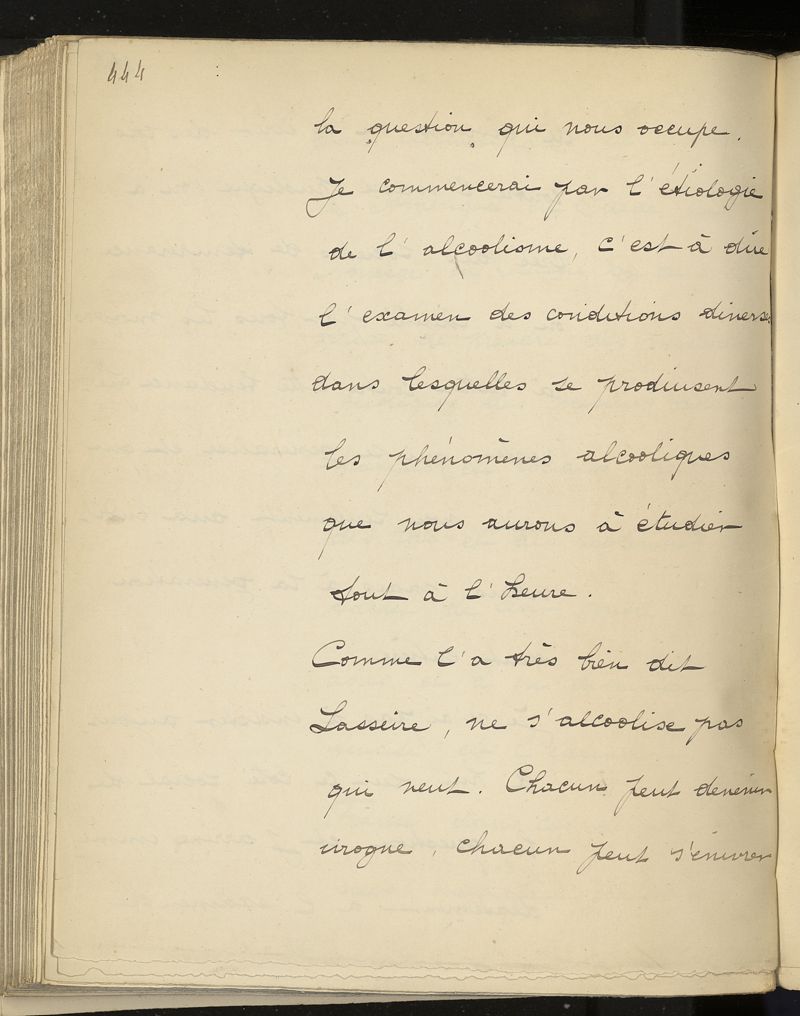 444
la question qui nous occupe.
Je commencerai par l'étiologie
de l'alcoolisme, c'est à dire
l'examen des conditions diverses
dans lesquelles se produisent
les phénomènes alcooliques
que nous aurons à étudier
tout à l'heure.
Comme l'a très bien dit
Lasseire, ne s'alcoolise pas
qui veut. Chacun peut devenir
ivrogne, chacun peut s'enivrer